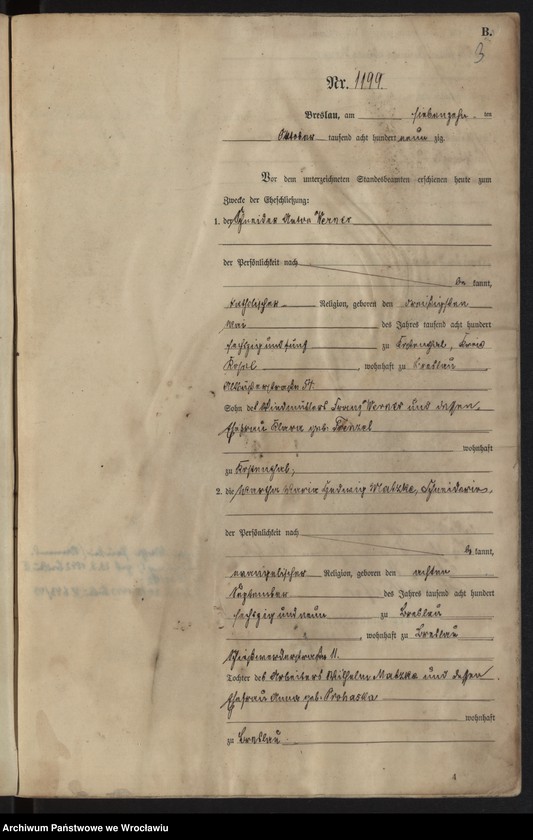 B.
3
Nr. 1199.
Breslau, am siebenzehn ten
Oktober tausend acht hundert neun zig.
Vor dem unterzeichneten Standesbeamten erschienen heute zum
Zwecke der Eheschließung:
1. der Schneider Anton Werner
der Persönlichkeit nach
be kannt,
katholischer Religion, geboren den dreißigsten
Mai des Jahres tausend acht hundert
sechszig und fünf zu Kostenthal, Kreis
Kosel, wohnhaft zu Breslau
Sohn des Windmüllers Franz Werner und dessen
Ehefrau Klara geb.
wohnhaft
zu Kostenthal,
2. die Martha Maria Hedwig Matzke, Schneiderin,
der Persönlichkeit nach
be kannt,
evangelischer Religion, geboren den achten
September des Jahres tausend acht hundert
sechszig und neun zu Breslau
, wohnhaft zu Breslau
Schießwerderstraße 11.
Tochter des Arbeiters Wilhelm Matzke und dessen
Ehefrau Anna geb. Prohaska
wohnhaft
zu Breslau.
4
Archiwum Państwowe we Wrocławiu